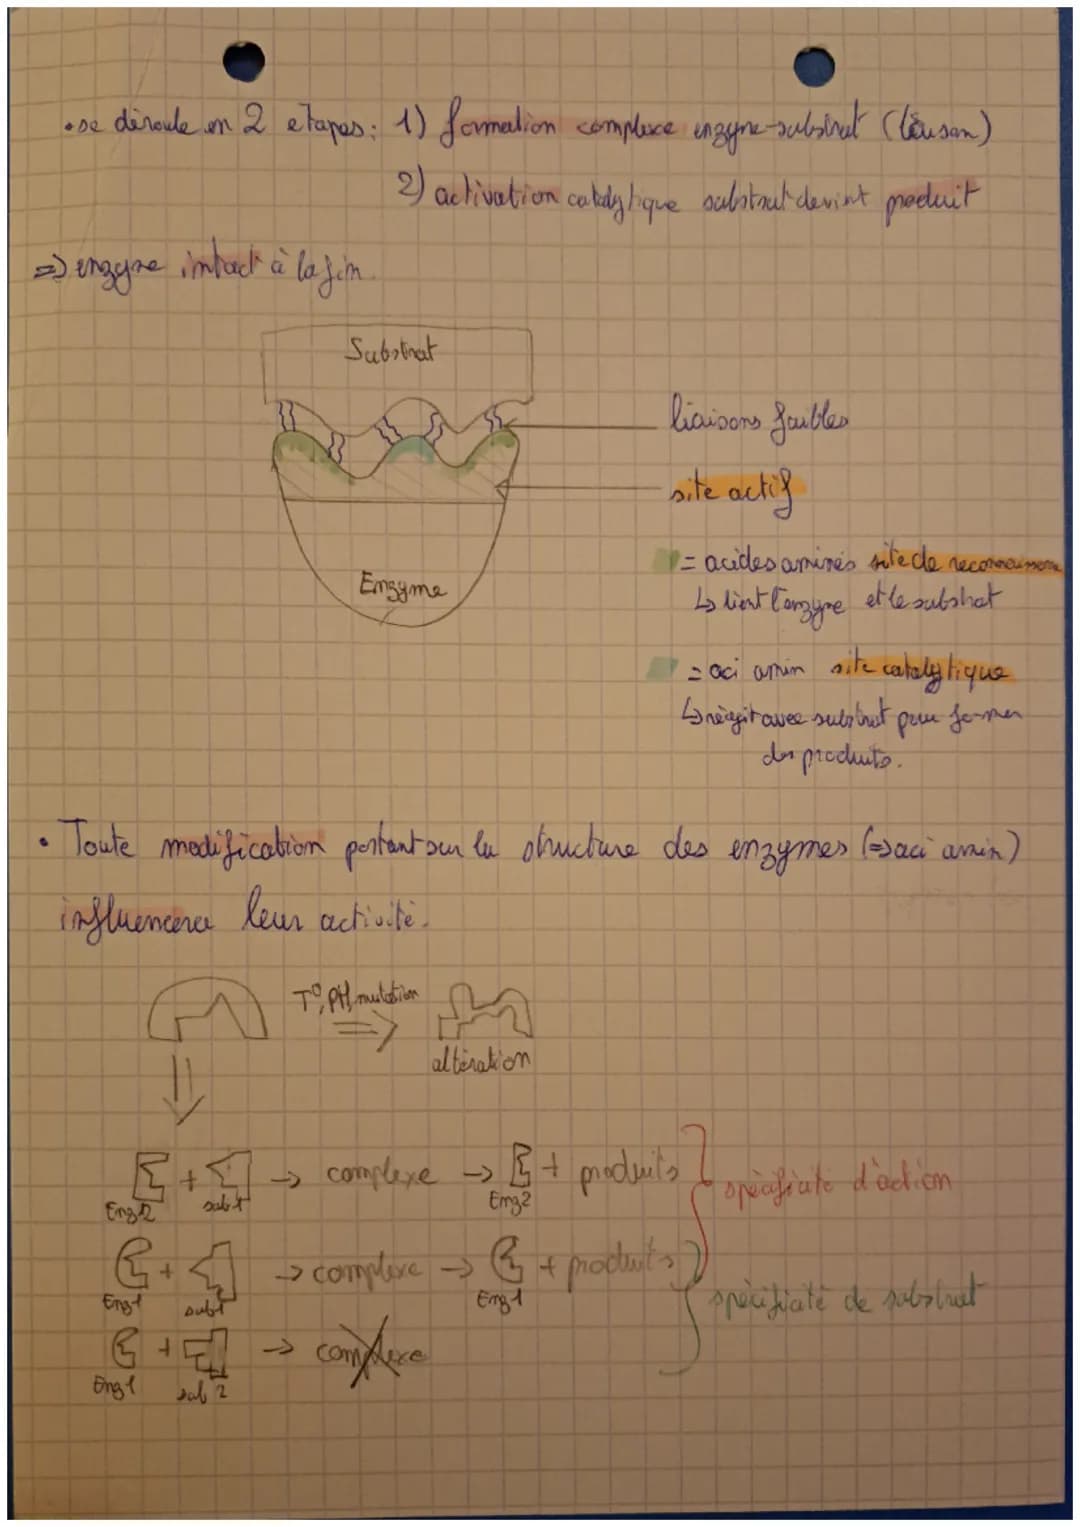 • se déroule en 2 etapes : 1) formation complexe enzyme-substrat (liaison)
2) activation catalytique substrat devint produit
=> enzyme intact à la fin.
Substrat
liaisons faibles
site actif
= acides aminés site de reconnaissance
Enzyme
↳ lient l'enzyme et le substrat
= aci amin site catalytique
↳ réagit avec substrat pour former
des produits.
• Toute modification portant sur la structure des enzymes (=> aci amin)
influencera leur activité.
T°, PH, mutation
=>
altération
+ → complexe → + produits
Enz 2 sub 1 Enz 2
spécificité d'action
+ → complexe → + produits
Enz 1 sub 1 Enz 1
spécificité de substrat
+ → complexe
Enz 1 sub 2